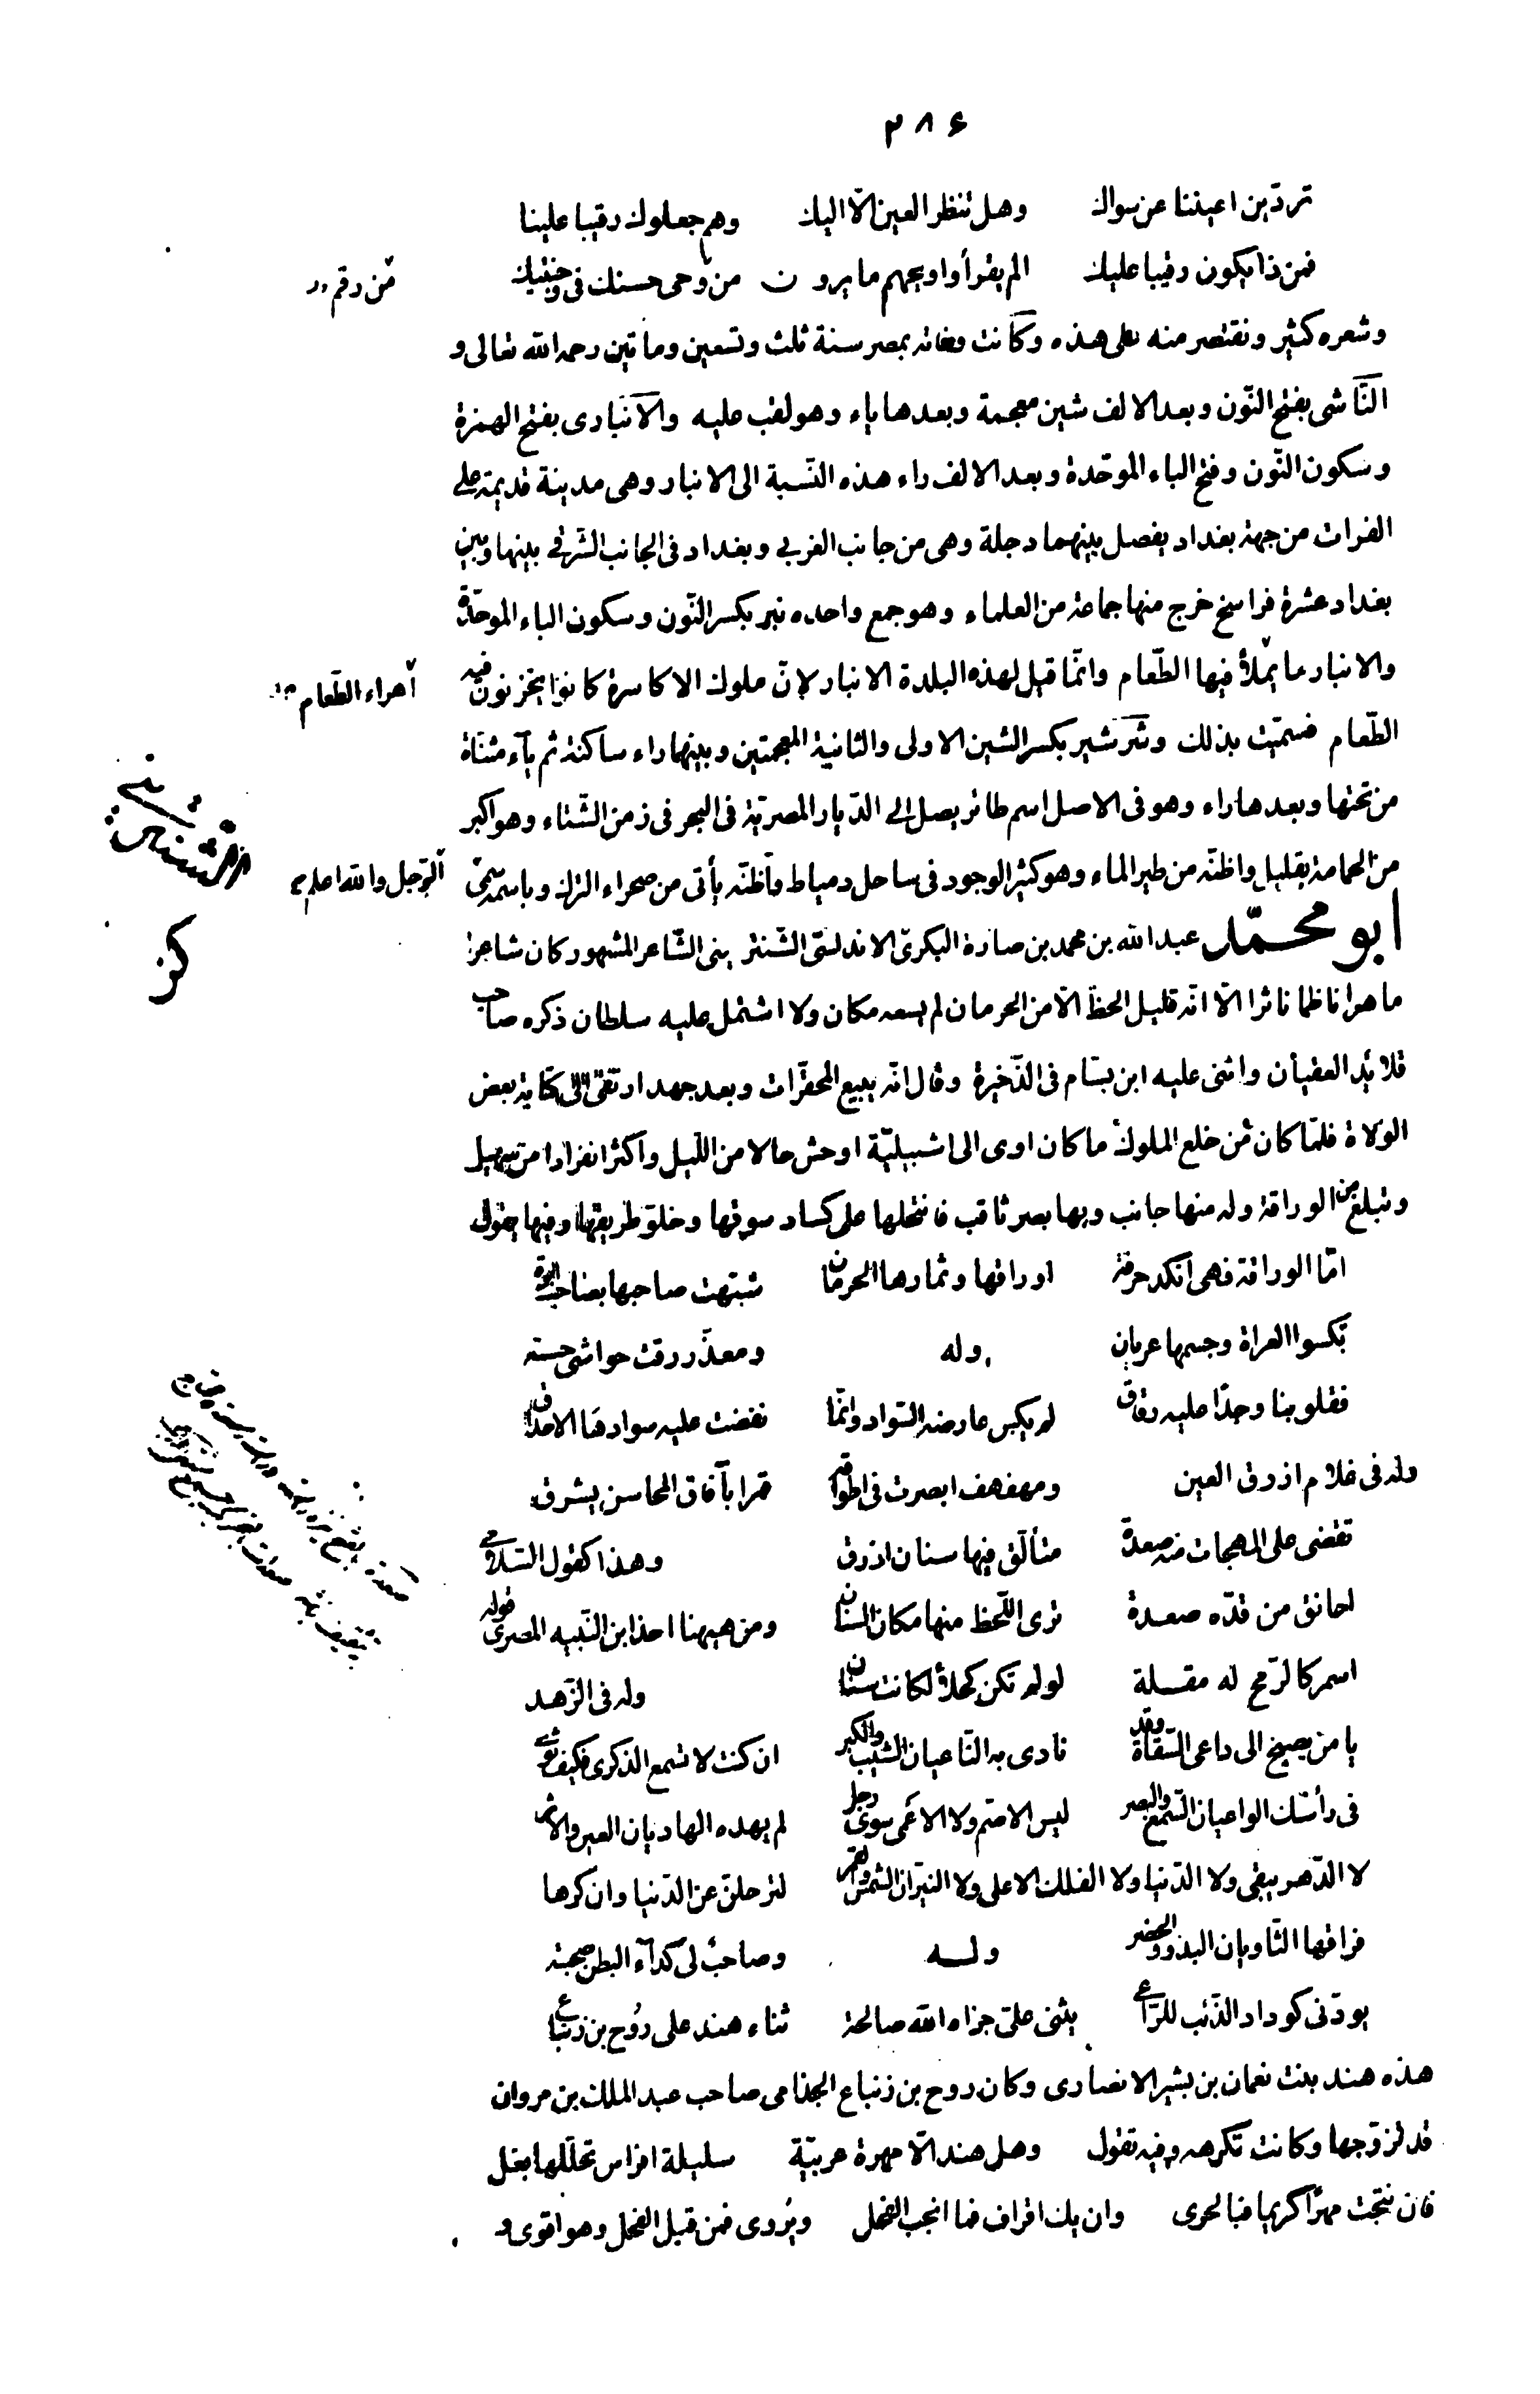 ٢٨٤
تردّ بن اعيننا عن سواك وهل تنظر العين الّا اليك وهم جعلوك رقيبا علينا
فمن ذا يكون رقيبا عليك الم يقرأوا ويحهم ما يرون من وحى حسنك فى وجنتيك
من رقم
وشعره كثير ونقتصر منه على هذه وكانت وفاته بمصر سنة ثلث وتسعين ومائتين رحمه الله تعالى و
النّاشى بفتح النّون وبعد الالف شين معجمة وبعدها ياء وهو لقب عليه والانبارى بفتح الهمزة
وسكون النّون وفتح الباء الموحّدة وبعد الالف راء هذه النّسبة الى الانبار وهى مدينة قديمة على
الفرات من جهة بغداد يفصل بينهما دجلة وهى من جانب الغربى وبغداد فى الجانب الشرقى بينها وبين
بغداد عشرة فراسخ خرج منها جماعة من العلماء وهو جمع واحده نبر بكسر النّون وسكون الباء الموحّدة
والانبار ما يملأ فيها الطّعام وانّما قيل لهذه البلدة الانبار لانّ ملوك الاكاسرة كانوا يخزنون فيه
أهراء الطّعام
الطّعام فسمّيت بذلك وشرشير بكسر الشين الاولى والثانية المعجمتين وبينهما راء ساكنة ثم ياء مثنّاة
من تحتها وبعدها راء وهو فى الاصل اسم طائر يصل الى الدّيار المصريّة فى البحر فى زمن الشّتاء وهو اكبر
من الحمامة بقليل واظنّه من طير الماء وهو كثير الوجود فى ساحل دمياط واظنّه يأتى من صحراء الترك وباسمه سمّى
الرّجل والله اعلم
ابو محمّد عبد الله بن محمد بن صارة البكرىّ الاندلسىّ الشّنترينى الشّاعر المشهور كان شاعرا
ماهرا ناظما ناثرا الّا انّه قليل الحظّ الّا من الحرمان لم يسعه مكان ولا اشتمل عليه سلطان ذكره صاحب
قلائد العقيان واثنى عليه ابن بسّام فى الذّخيرة وقال انّه يبيع المحقّرات وبعد جهد ارتقى الى كتابة بعض
الولاة فلمّا كان من خلع الملوك ما كان اوى الى اشبيليّة اوحش حالا من اللّيل واكثر انفرادا من سهيل
وتبلغ من الوراقة وله منها جانب وبها بصر ثاقب فانتحلها على كساد سوقها وخلوّ طريقها وفيها يقول
امّا الوراقة فهى انكد حرفة اوراقها وثمارها الحرمان شبّهت صاحبها بصاحب ابرة
تكسوا العراة وجسمها عريان وله ومعذّر رقت حواشى حسنه
فقلوبنا وجدا عليه رقاق لم يكس عارضه السّواد وانّما نفضت عليه سوادها الاحداق
وله فى غلام ازرق العين ومهفهف ابصرت فى اطواقه قمرا بآفاق المحاسن يشرق
تقضى على المهجات منه صعدة متألّق فيها سنان ازرق وهذا كقول السّلامى
احانق من قدّه صعدة ترى اللّحظ منها مكان السنان ومن ههنا اخذ ابن النّبيه المصرى قوله
اسمر كالرّمح له مقلة لو لم تكن كحلاً لكانت سنان وله فى الزّهد
يا من يصيخ الى داعى السّقاة وقد نادى به النّاعيان الشّيب والكبر ان كنت لا تسمع الذكرى فكيف ثوى
فى رأسك الواعيان السّمع والبصر ليس الاصمّ ولا الاعمى سوى رجل لم يهده الهاديان العين والاثر
لا الدّهر يبقى ولا الدّنيا ولا الفلك الاعلى ولا النيّران الشّمس والقمر لترحلنّ عن الدّنيا وان كرها
فراقها الثّاويان البدو والحضر وله وصاحب لى كداء البطن صحبته
يودّنى كوداد الذّئب للرّاعى يثنى علىّ جزاه الله صالحة ثناء هند على روح بن زنباع
هذه هند بنت نعمان بن بشير الانصارى وكان روح بن زنباع الجذامى صاحب عبد الملك بن مروان
قد تزوّجها وكانت تكرهه وفيه تقول وهل هند الّا مهرة عربيّة سليلة افراس تحلّلها بغل
فان نتجت مهرا كريما فبالحرى وان يك اقراف فما انجب الفحل ويُروى فمن قبل الفحل وهو اقوى و
الشنترينى
كز